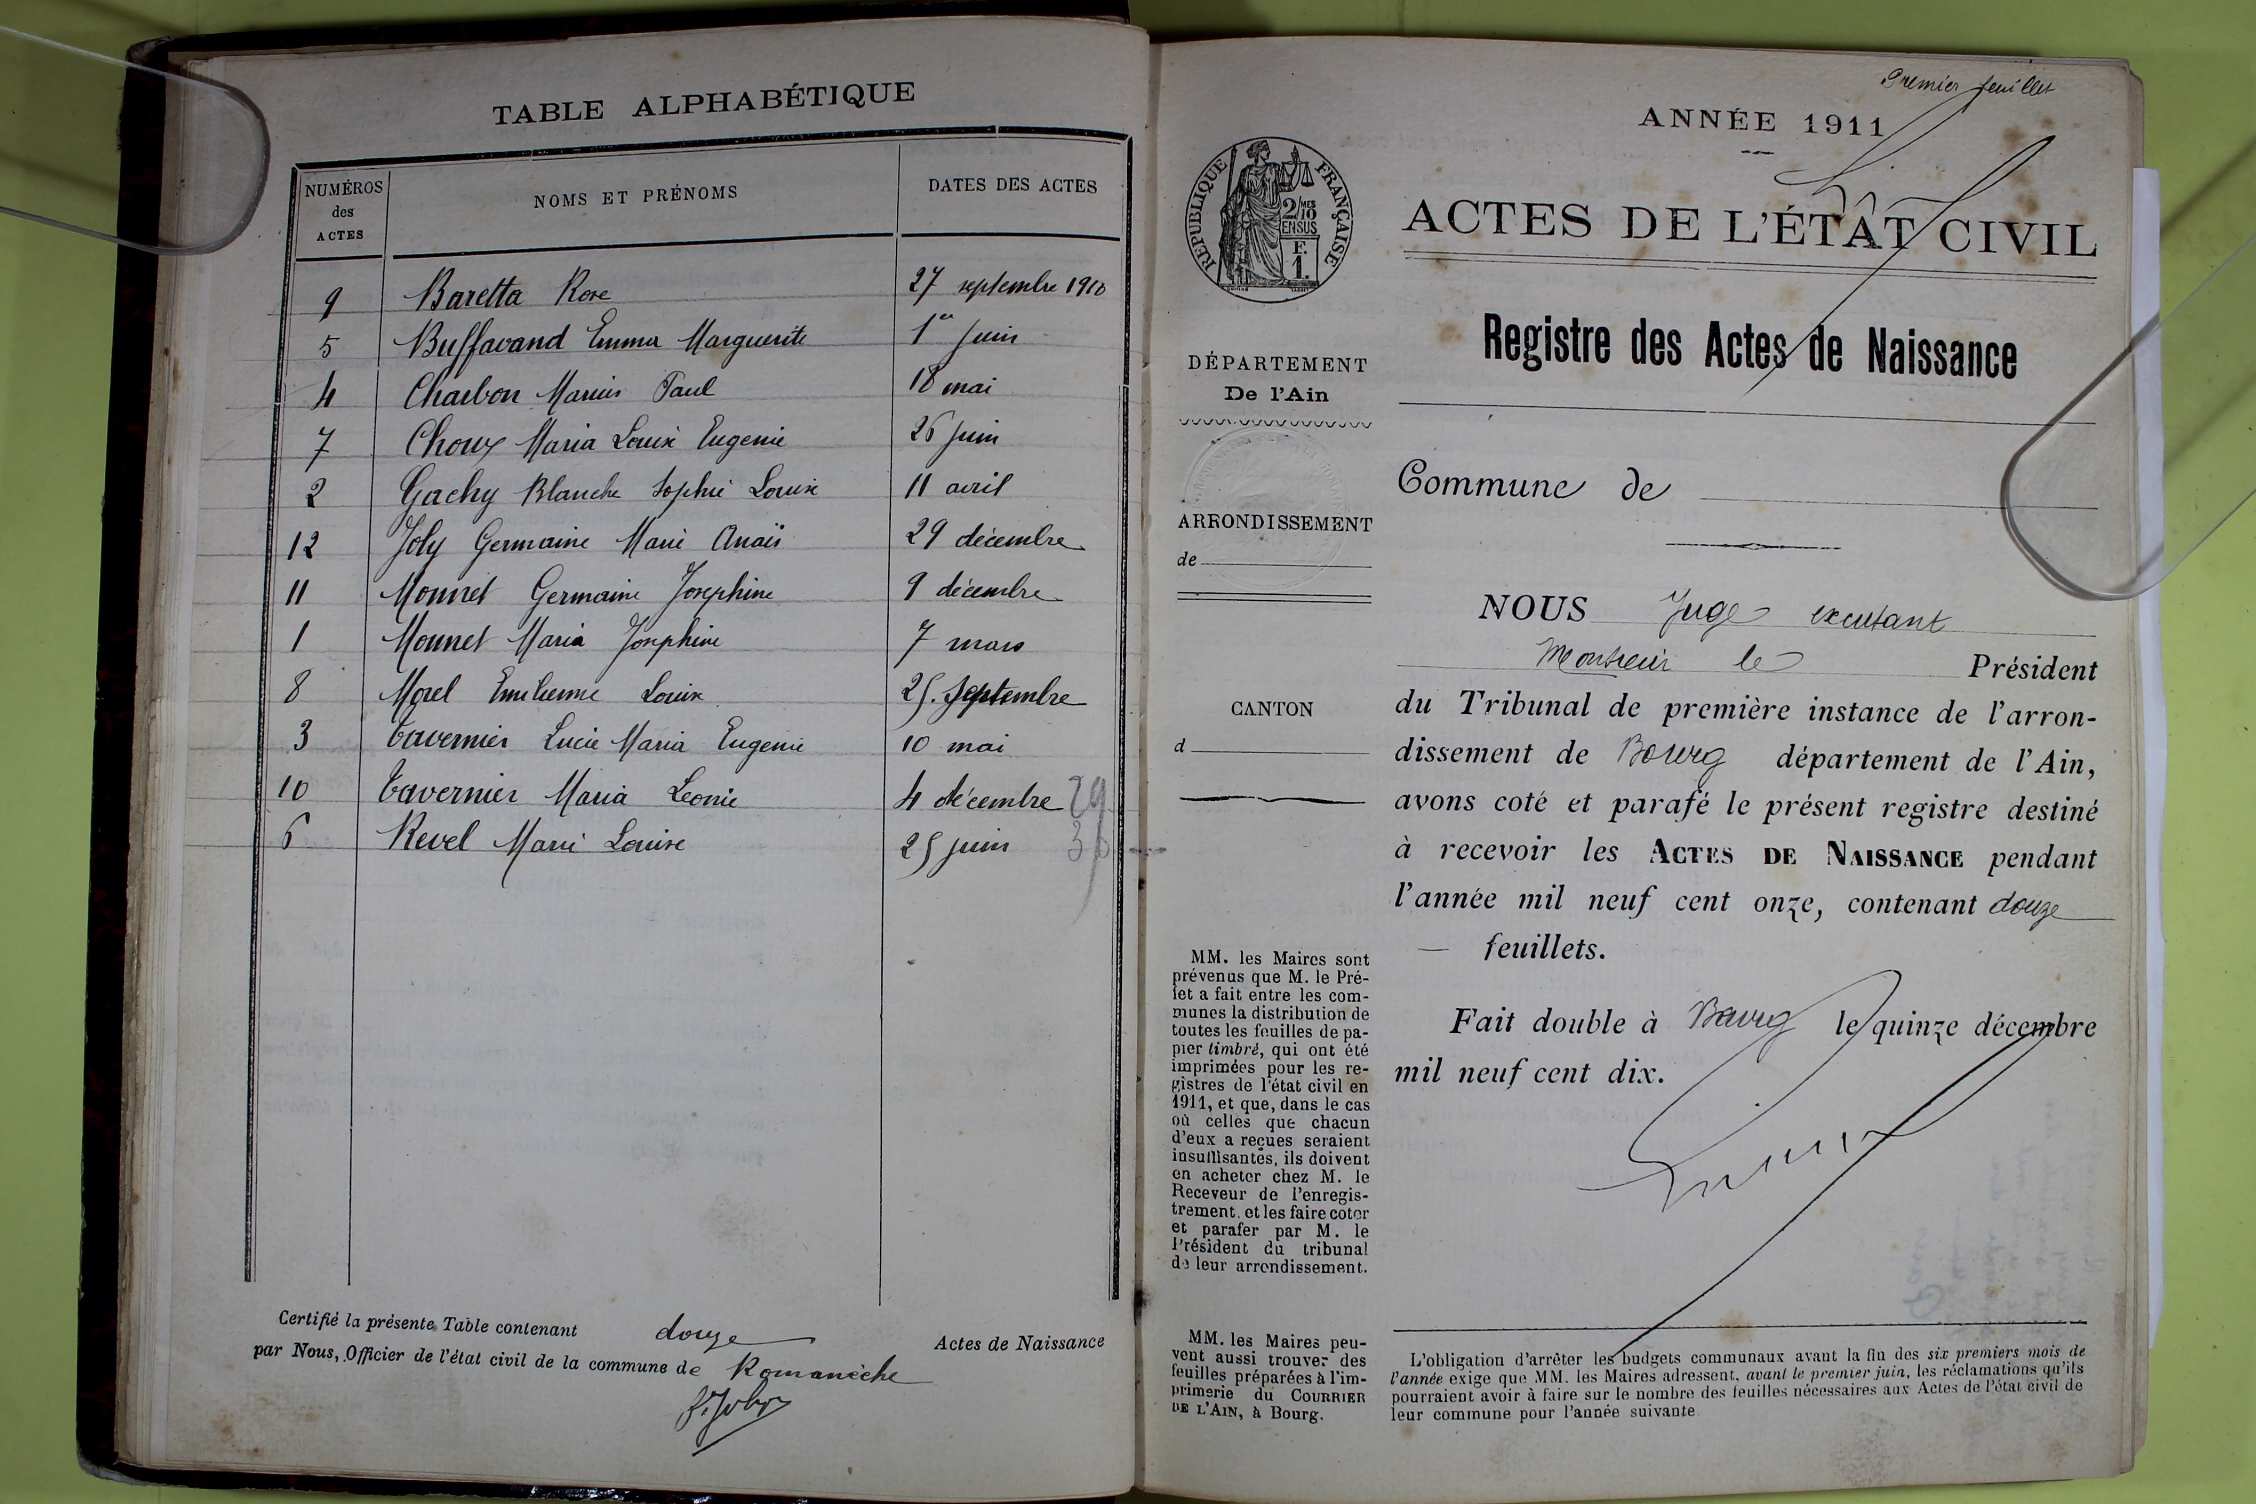 TABLE ALPHABÉTIQUE
NUMÉROS
des
ACTES
NOMS ET PRÉNOMS
DATES DES ACTES
9 Baretta Rose 27 septembre 1910
5 Buffavand Emma Marguerite 1er juin
4 Charbon Marius Paul 18 mai
7 Choux Maria Louise Eugenie 26 juin
2 Gachy Blanche Sophie Louise 11 avril
12 Joly Germaine Marie Anaïs 29 décembre
11 Monnet Germaine Josephine 9 décembre
1 Monnet Maria Josephine 7 mars
8 Morel Emilienne Louise 25 septembre
3 Tavernier Lucie Maria Eugenie 10 mai
10 Tavernier Maria Leonie 4 décembre
6 Revel Marie Louise 25 juin
Certifié la présente Table contenant douze Actes de Naissance
par Nous, Officier de l'état civil de la commune de Romanèche
F. Joly
Premier feuillet
ANNÉE 1911
RÉPUBLIQUE FRANÇAISE
2/10 MES
EN SUS
F.
1.
ACTES DE L'ÉTAT CIVIL
Registre des Actes de Naissance
DÉPARTEMENT
De l'Ain
ARRONDISSEMENT
de
CANTON
d
Commune de
NOUS Juge excusant
Monsieur le Président
du Tribunal de première instance de l'arron-
dissement de Bourg département de l'Ain,
avons coté et parafé le présent registre destiné
à recevoir les ACTES DE NAISSANCE pendant
l'année mil neuf cent onze, contenant douze
— feuillets.
Fait double à Bourg le quinze décembre
mil neuf cent dix.
MM. les Maires sont
prévenus que M. le Pré-
fet a fait entre les com-
munes la distribution de
toutes les feuilles de pa-
pier timbré, qui ont été
imprimées pour les re-
gistres de l'état civil en
1911, et que, dans le cas
où celles que chacun
d'eux a reçues seraient
insuffisantes, ils doivent
en acheter chez M. le
Receveur de l'enregis-
trement, et les faire coter
et parafer par M. le
Président du tribunal
de leur arrondissement.
MM. les Maires peu-
vent aussi trouver des
feuilles préparées à l'im-
primerie du COURRIER
DE L'AIN, à Bourg.
L'obligation d'arrêter les budgets communaux avant la fin des six premiers mois de
l'année exige que MM. les Maires adressent, avant le premier juin, les réclamations qu'ils
pourraient avoir à faire sur le nombre des feuilles nécessaires aux Actes de l'état civil de
leur commune pour l'année suivante.